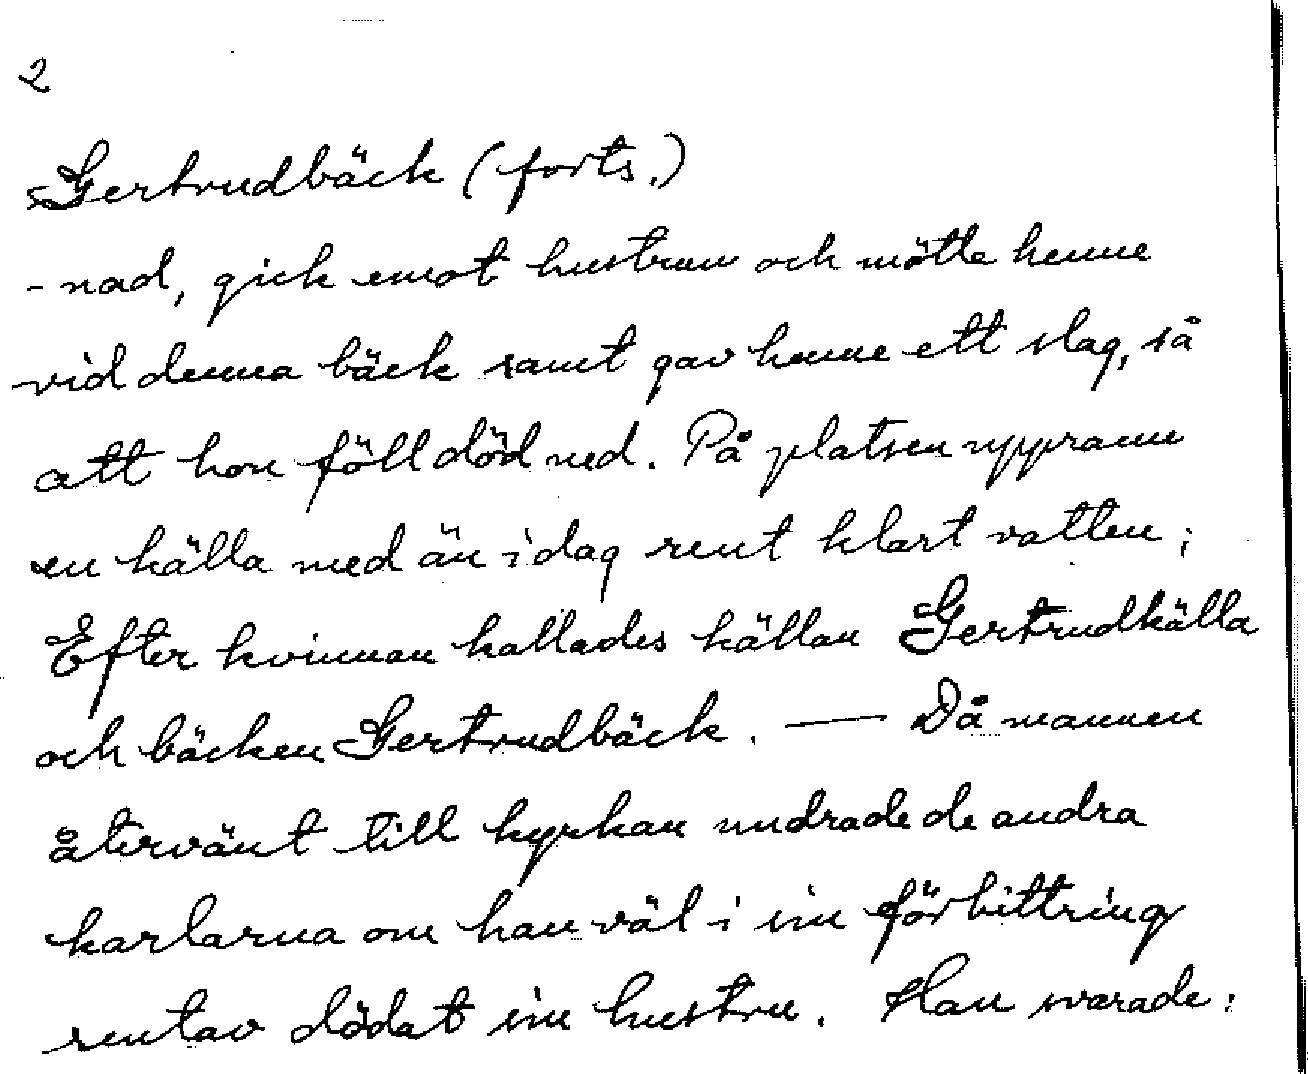 2
Gertrudbäck (forts.)
- nad, gick emot hustrun och mötte henne
vid denna bäck samt gav henne ett slag, så
att hon föll död ned. På platsen upprann
en källa med än i dag rent klart vatten;
Efter kvinnan kallades källan Gertrudkälla
och bäcken Gertrudbäck. — Då mannen
återvänt till kyrkan undrade de andra
karlarna om han väl i sin förbittring
rentav dödat sin hustru. Han svarade: